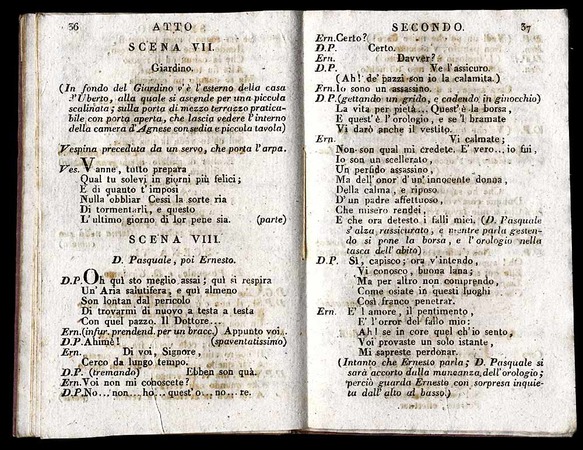 36 ATTO
SCENA VII.
Giardino.
(In fondo del Giardino v'è l'esterno della casa
d'Uberto, alla quale si ascende per una piccola
scalinata; sulla porta di mezzo terrazzo pratica-
bile con porta aperta, che lascia vedere l'interno
della camera d'Agnese con sedia e piccola tavola)
Vespina preceduta da un servo, che porta l'arpa.
Ves. Vanne, tutto prepara
Qual tu solevi in giorni più felici;
E di quanto t'imposi
Nulla obbliar Cessi la sorte ria
Di tormentarli, e questo
L'ultimo giorno di lor pene sia. (parte)
SCENA VIII.
D. Pasquale, poi Ernesto.
D.P. Oh quì sto meglio assai; quì si respira
Un'Aria salutifera, e quì almeno
Son lontan dal pericolo
Di trovarmi di nuovo a testa a testa
Con quel pazzo. Il Dottore...
Ern. (infur. prendend. per un bracc.) Appunto voi..
D.P. Ahimè! (spaventatissimo)
Ern. Di voi, Signore,
Cerco da lungo tempo.
D.P. (tremando) Ebben son quà.
Ern. Voi non mi conoscete?
D.P. No... non... ho... quest'o... no... re.
SECONDO. 37
Ern. Certo?
D.P. Certo.
Ern. Davver?
D.P. Ve l'assicuro.
(Ah! de' pazzi son io la calamita.)
Ern. Io sono un assassino.
D.P. (gettando un grido, e cadendo in ginocchio)
La vita per pietà... Quest'è la borsa,
E quest'è l'orologio, e se l bramate
Vi darò anche il vestito.
Ern. Vi calmate;
Non son qual mi credete. E' vero... io fui,
Io son un scellerato,
Un perfido assassino,
Ma dell'onor d'un'innocente donna,
Della calma, e riposo
D'un padre affettuoso,
Che misero rendei,
E che ora detesto i falli miei. (D. Pasquale
s'alza rassicurato, e mentre parla gesten-
do si pone la borsa, e l'orologio nella
tasca dell'abito)
D.P. Sì, capisco; ora v'intendo,
Vi conosco, buona lana;
Ma per altro non comprendo,
Come osiate in questi luoghi
Così franco penetrar.
Ern. E' l amore, il pentimento,
E' l'orror del fallo mio:
Ah! se in core quel ch'io sento,
Voi provaste un solo istante,
Mi sapreste perdonar.
(Intanto che Ernesto parla; D. Pasquale si
sarà accorto dalla mancanza, dell'orologio;
perciò guarda Ernesto con sorpresa inquie-
ta dall'alto al basso.)